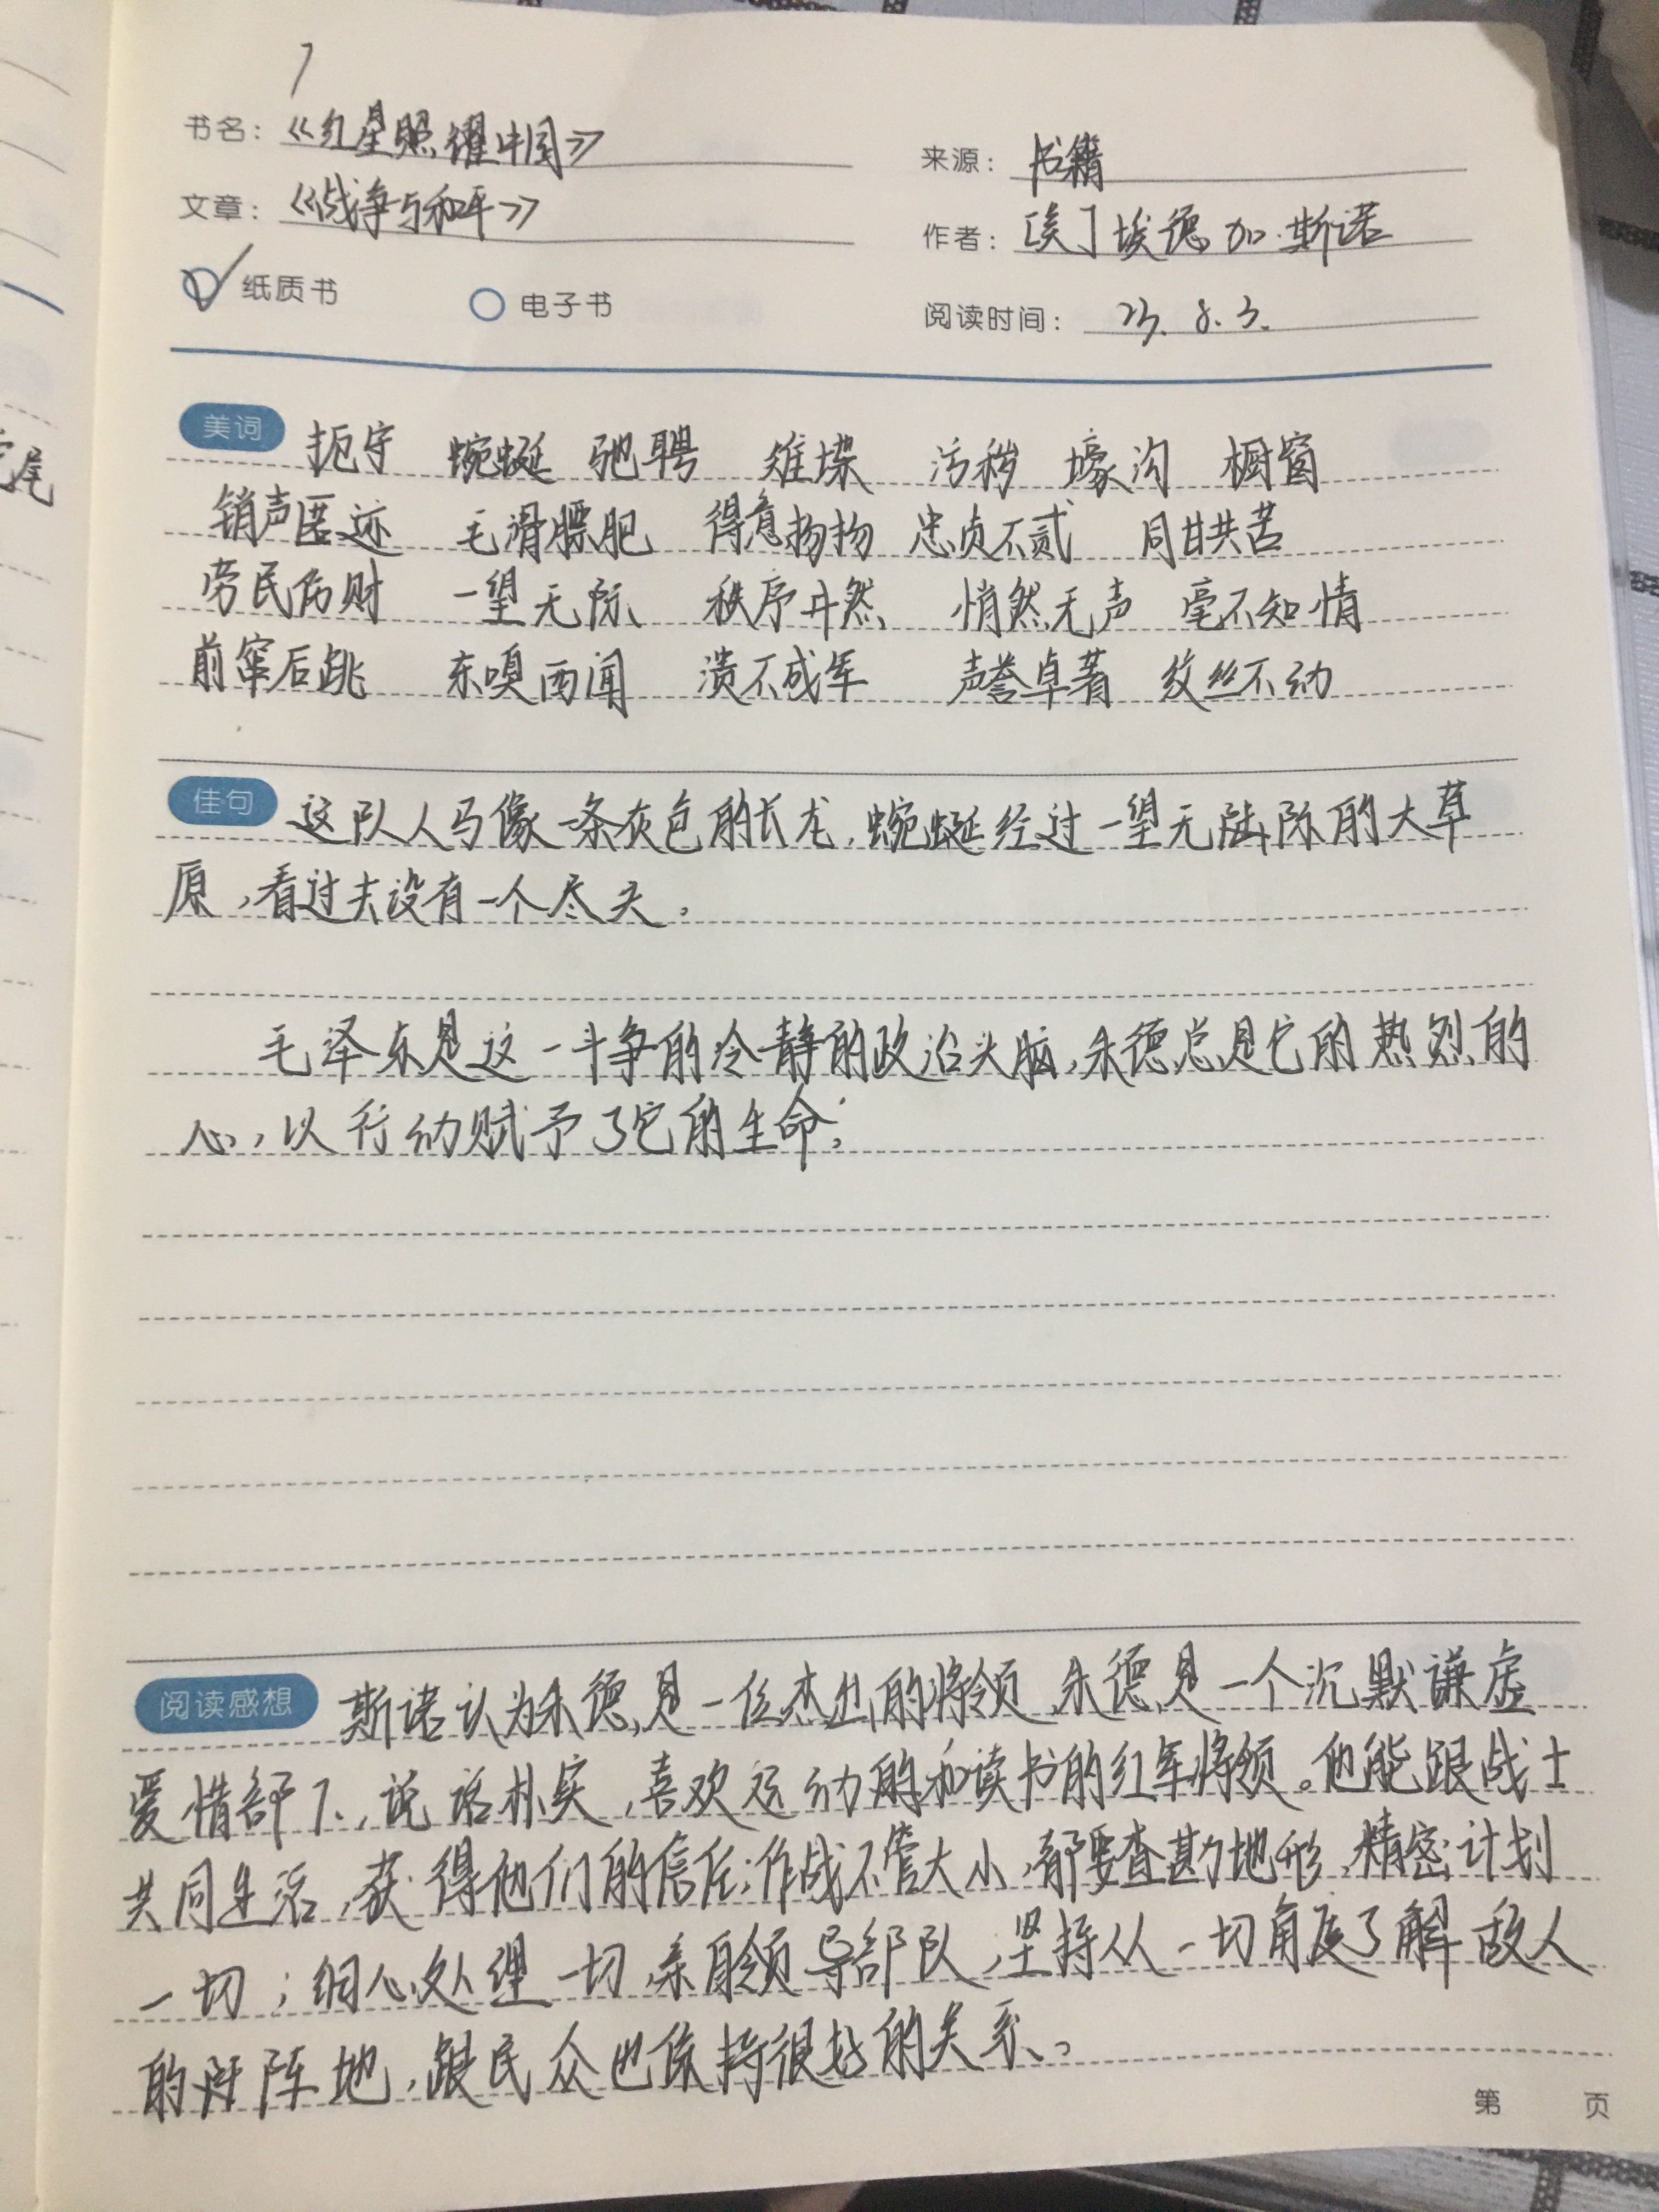 7
书名：《红星照耀中国》
来源：书籍
文章：《战争与和平》
作者：[美]埃德加·斯诺
纸质书 电子书
阅读时间：23.8.3.
美词 扼守 蜿蜒 驰骋 雉堞 污秽 壕沟 橱窗
销声匿迹 毛滑膘肥 得意扬扬 忠贞不贰 同甘共苦
劳民伤财 一望无际 秩序井然 悄然无声 毫不知情
前窜后跳 东嗅西闻 溃不成军 声誉卓著 纹丝不动
佳句 这队人马像一条灰色的长龙，蜿蜒经过一望无际的大草
原，看过去没有一个尽头。
毛泽东是这一斗争的冷静的政治头脑，朱德总是它的热烈的
心，以行动赋予了它的生命；
阅读感想 斯诺认为朱德是一位杰出的将领，朱德是一个沉默谦虚
爱惜部下，说话朴实，喜欢运动的和读书的红军将领。他能跟战士
共同生活，获得他们的信任；作战不管大小，都要查勘地形，精密计划
一切；细心处理一切，亲自领导部队，坚持从一切角度了解敌人
的阵地，跟民众也保持很好的关系。
第 页
尾